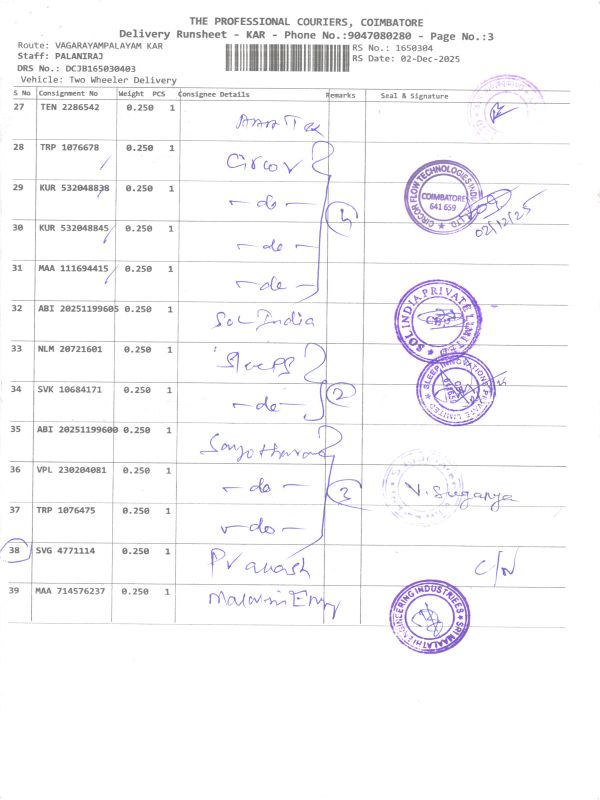 THE PROFESSIONAL COURIERS, COIMBATORE
Delivery Runsheet - KAR - Phone No.:9047080280 - Page No.:3
Route: VAGARAYAMPALAYAM KAR
RS No.: 1650304
Staff: PALANIRAJ
RS Date: 02-Dec-2025
DRS No.: DCJB165030403
Vehicle: Two Wheeler Delivery
S No Consignment No Weight PCS Consignee Details Remarks Seal & Signature
27 TEN 2286542 0.250 1
28 TRP 1076678 0.250 1 Circor
CIRCOR FLOW TECHNOLOGIES INDIA LTD.
COIMBATORE
641 659
02/12/25
29 KUR 532048838 0.250 1 - do -
4
30 KUR 532048845 0.250 1 - do -
31 MAA 111694415 0.250 1 - do -
32 ABI 20251199605 0.250 1 Sol India
SOL INDIA PRIVATE LIMITED
33 NLM 20721601 0.250 1 Sleeps
SLEEP INNOVATIONS PRIVATE LIMITED
34 SVK 10684171 0.250 1 - do -
2
35 ABI 20251199600 0.250 1
36 VPL 230204081 0.250 1 - do -
3
V. Suganya
37 TRP 1076475 0.250 1 - do -
38 SVG 4771114 0.250 1 Prakash
C/N
39 MAA 714576237 0.250 1 Malarvi Engg
SRI MAALATHI ENGINEERING INDUSTRIES